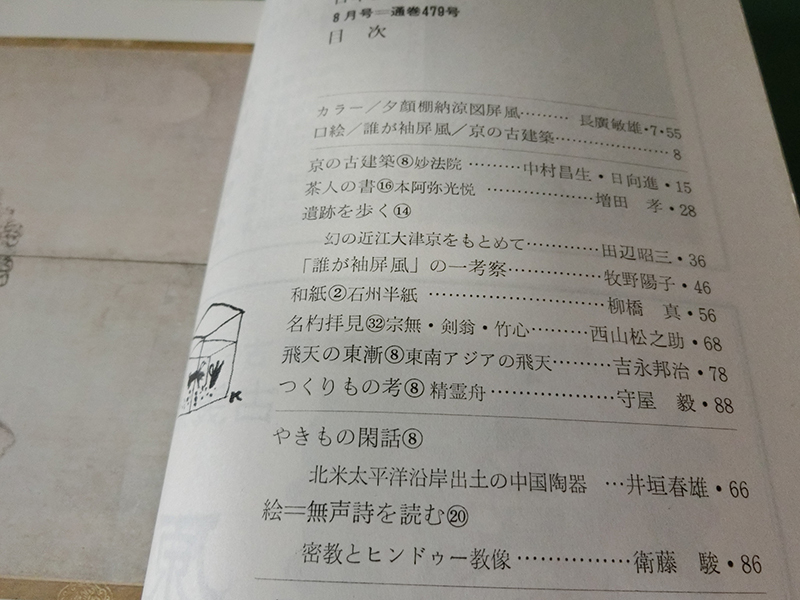 8月号＝通巻479号
目 次
カラー／夕顔棚納涼図屏風………長廣敏雄・7・55
口絵／誰が袖屏風／京の古建築………………8
京の古建築⑧妙法院………中村昌生・日向進・15
茶人の書⑯本阿弥光悦………………増田　孝・28
遺跡を歩く⑭
幻の近江大津京をもとめて…………田辺昭三・36
「誰が袖屏風」の一考察……………牧野陽子・46
和紙②石州半紙……………………柳橋　真・56
名杓拝見㉜宗無・剣翁・竹心………西山松之助・68
飛天の東漸⑧東南アジアの飛天………吉永邦治・78
つくりもの考⑧精霊舟………………守屋　毅・88
やきもの閑話⑧
北米太平洋沿岸出土の中国陶器…井垣春雄・66
絵＝無声詩を読む⑳
密教とヒンドゥー教像……………衛藤　駿・86
K